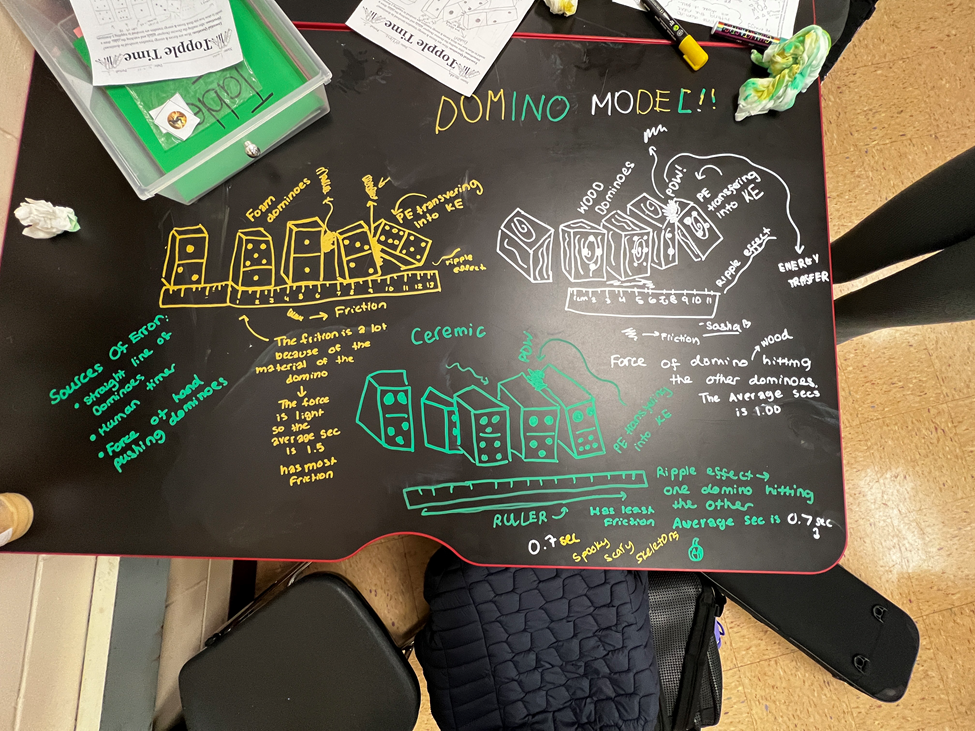 Topple Time
Topple Time
Table
DOMINO MODEL!!
Foam
dominoes
PE transvering
into KE
ripple
effect
Friction
The fritron is a lot
because of the
material of the
domino
The force
is light
so the
average sec
is 1.5
has most
Friction
Sources Of Error:
• straight line of
Dominoes
• Human timer
• Force of hand
pushing dominoes
WOOD
Dominoes
POW!
PE
transfering
into KE
Ripple effect
ENERGY
TRASFER
1cm 2 3 4 5 6 7 8 9 10 11
Friction
-Sasha
wood
Force of domino hitting
the other dominoes.
The Average Secs
is 1.00
Ceremic
POW
PE transfering
into KE
RULER
Has least
Friction
Ripple effect →
one domino hitting
the other
Average Sec is 0.7 sec
0.7 sec
Spooky
scary
skeletons